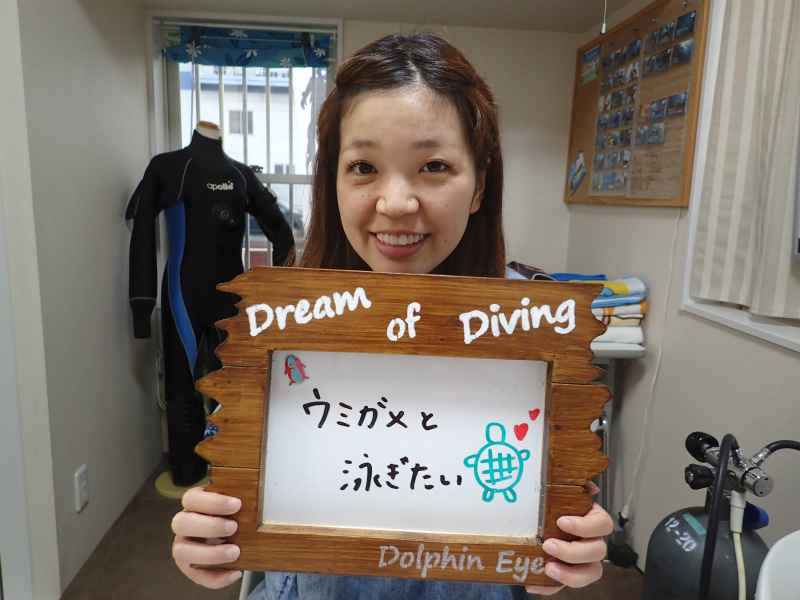 Dream of Diving
ウミガメと
泳ぎたい
Dolphin Eye
apollo
12-20